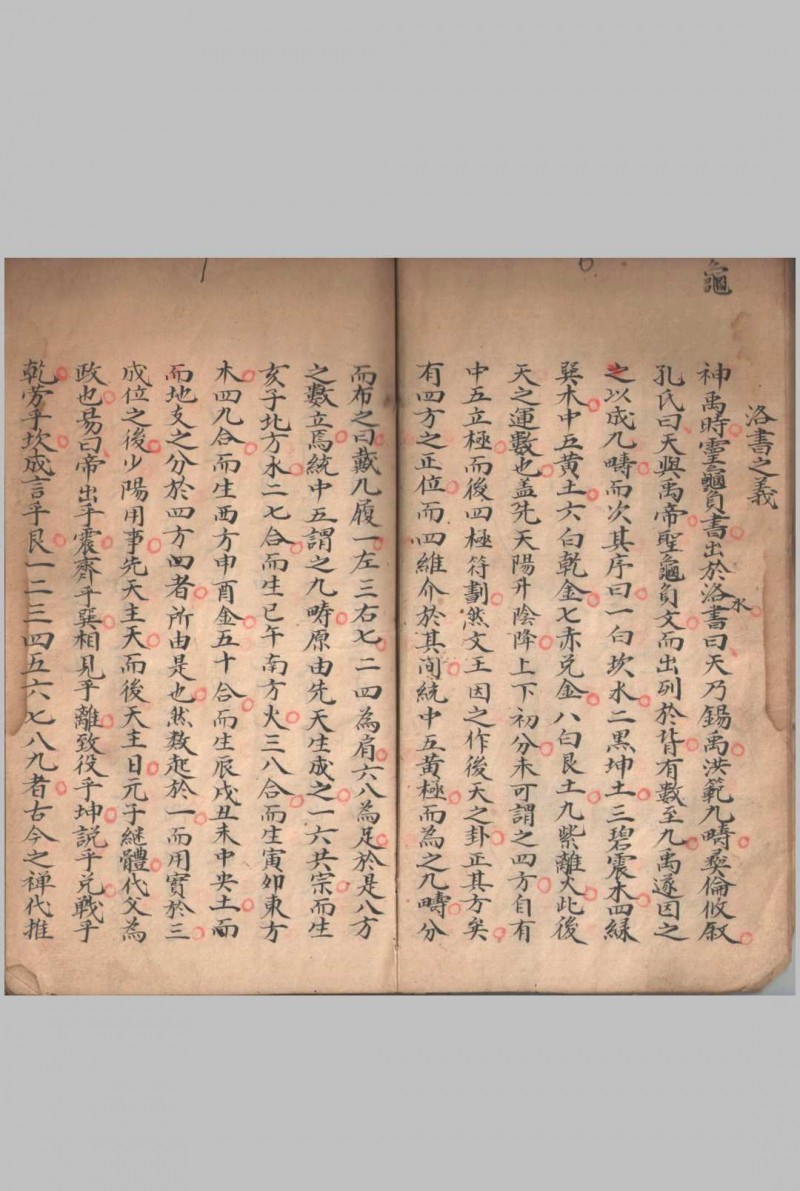 龜
洛書之義
神禹時靈龜負書出於洛水書曰天乃錫禹洪範九疇彜倫攸叙
孔氏曰天與禹帝聖龜負文而出列於背有數至九禹遂因之
之以成九疇而次其序曰一白坎水二黒坤土三碧震木四緑
巽木中五黄土六白乾金七赤兑金八白艮土九紫離火此後
天之運數也盖先天陽升陰降上下初分未可謂之四方自有
中五立極而後四極符劃然文王因之作後天之卦正其方矣
有四方之正位而四維介於其间統中五黄極而為之九疇分
而布之曰戴九履一左三右七二四為肩六八為足於是八方
之數立焉統中五謂之九疇原由先天生成之一六共宗而生
亥子北方水二七合而生巳午南方火三八合而生寅卯東方
木四九合而生西方申酉金五十合而生辰戌丑未中央土而
而地支之分於四方四者所由是也然数起於一而用實於三
成位之後少陽用事先天主天而後天主日元子継體代父為
政也易曰帝出乎震齊乎巽相見乎離致役乎坤説乎兑戰乎
乾劳乎坎成言乎艮一二三四五六七八九者古今之禅代推